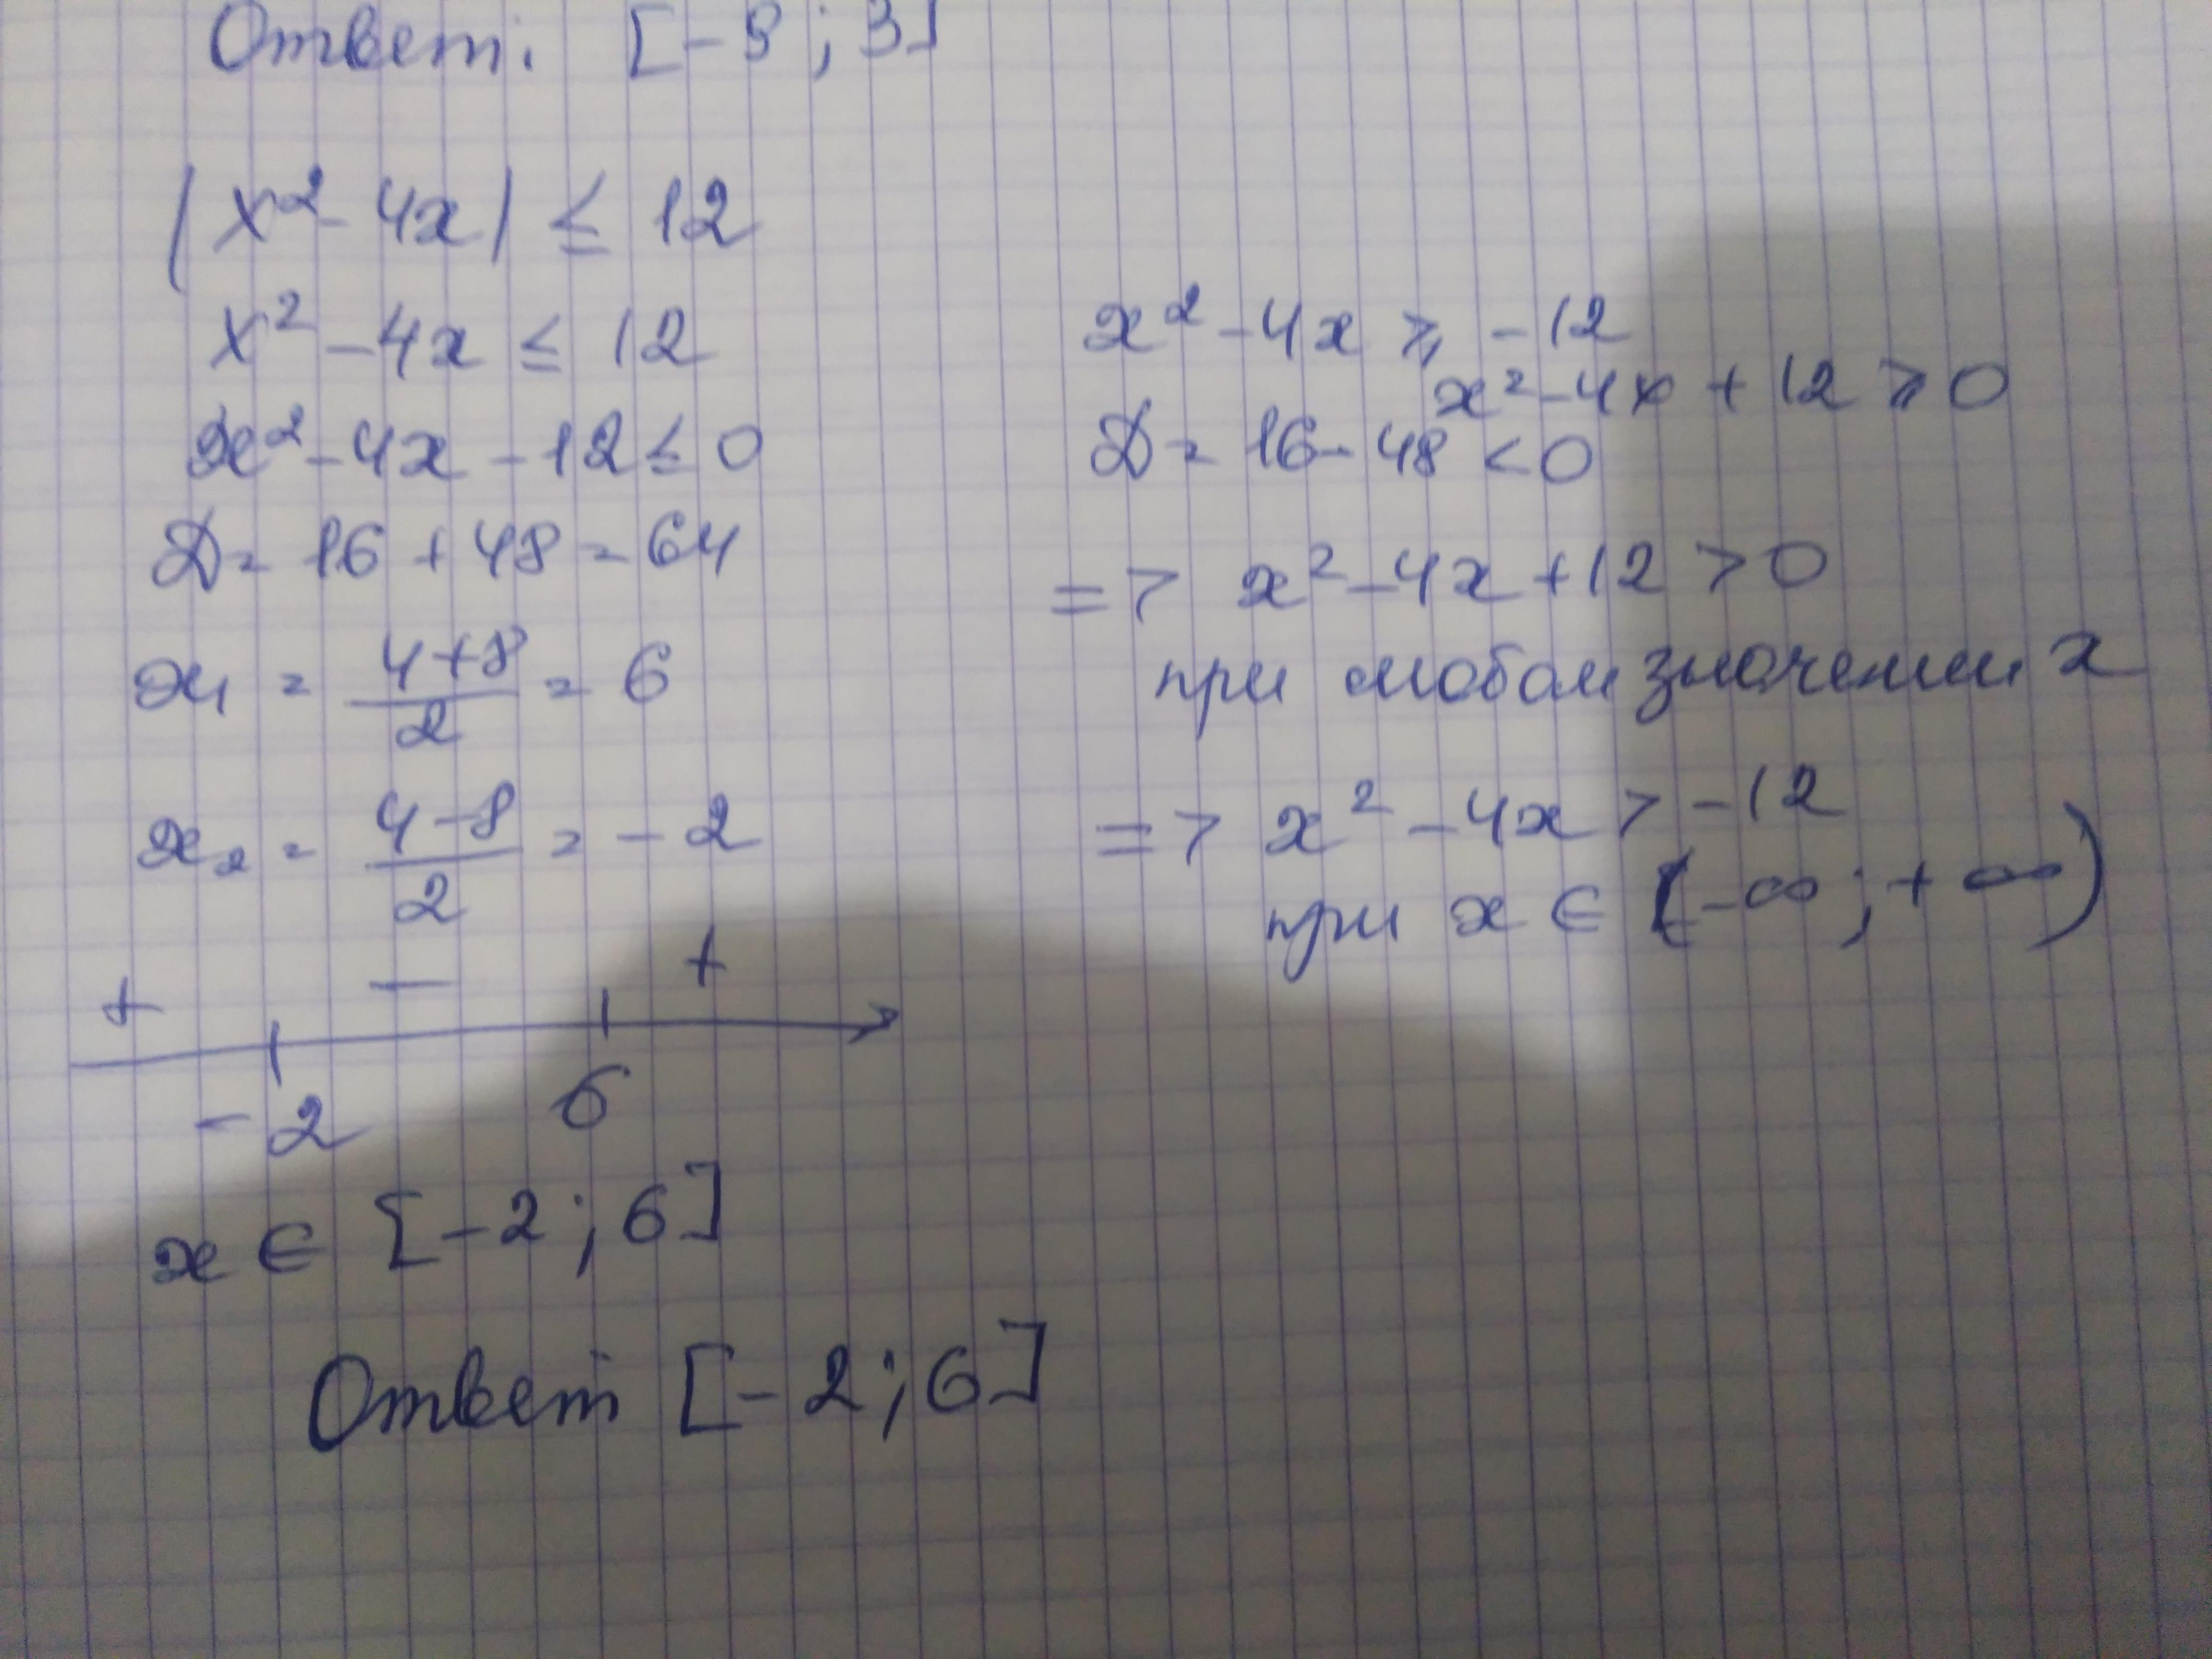 Ответ: [-3; 3]
|x² - 4x| ≤ 12
x² - 4x ≤ 12
x² - 4x - 12 ≤ 0
D = 16 + 48 = 64
x₁ = (4+8)/2 = 6
x₂ = (4-8)/2 = -2
+ - +
-2 6
x ∈ [-2; 6]
x² - 4x ⩾ -12
x² - 4x + 12 ⩾ 0
D = 16 - 48 < 0
=> x² - 4x + 12 > 0
при любом значении x
=> x² - 4x > -12
при x ∈ (-∞; +∞)
Ответ [-2; 6]